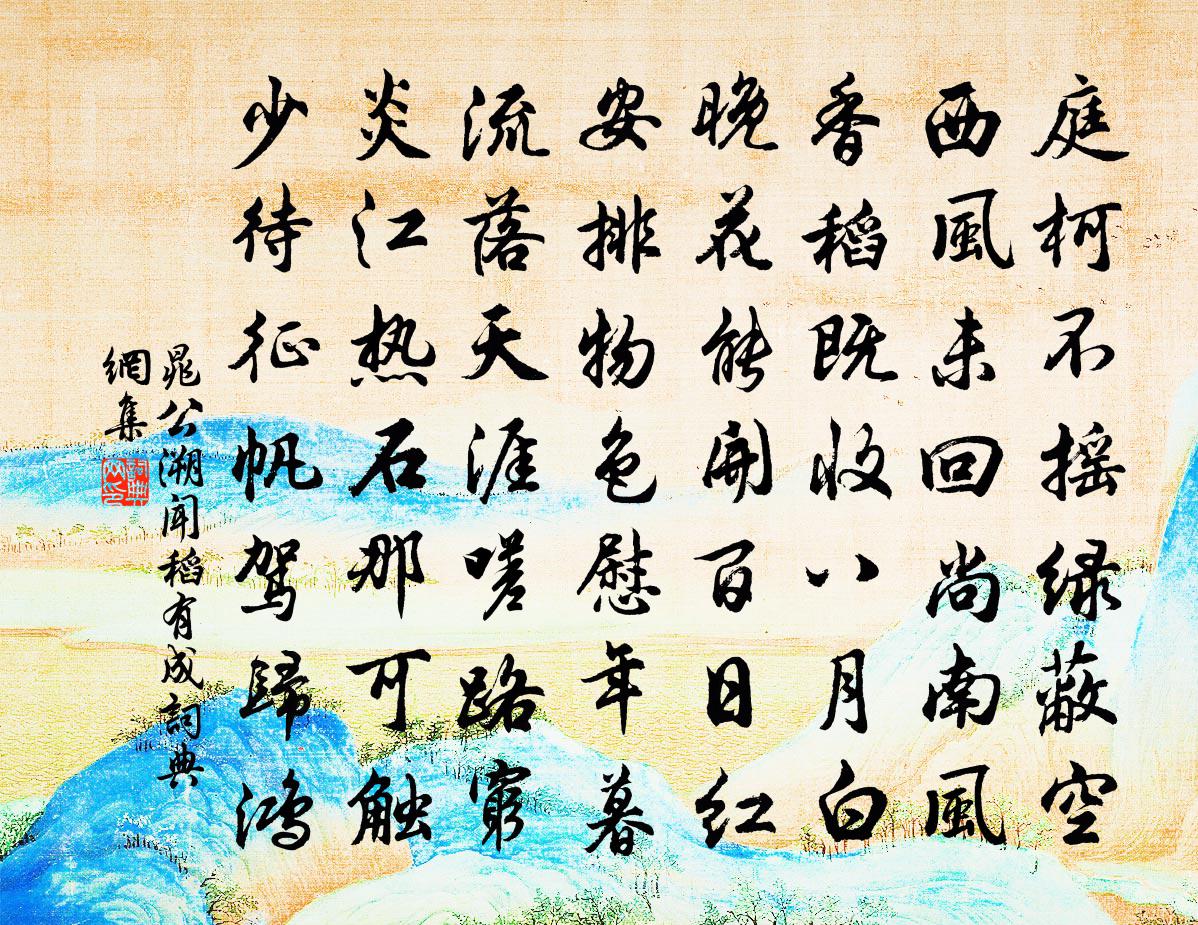 庭柯不摇绿蔽空
西風未回尚南風
香稻既收八月白
晚花能開百日红
安排物色慰年暮
流落天涯嗟路窮
炎江热石那可触
少待征帆驾歸鸿
晁公溯闻稻有成詞典
網集